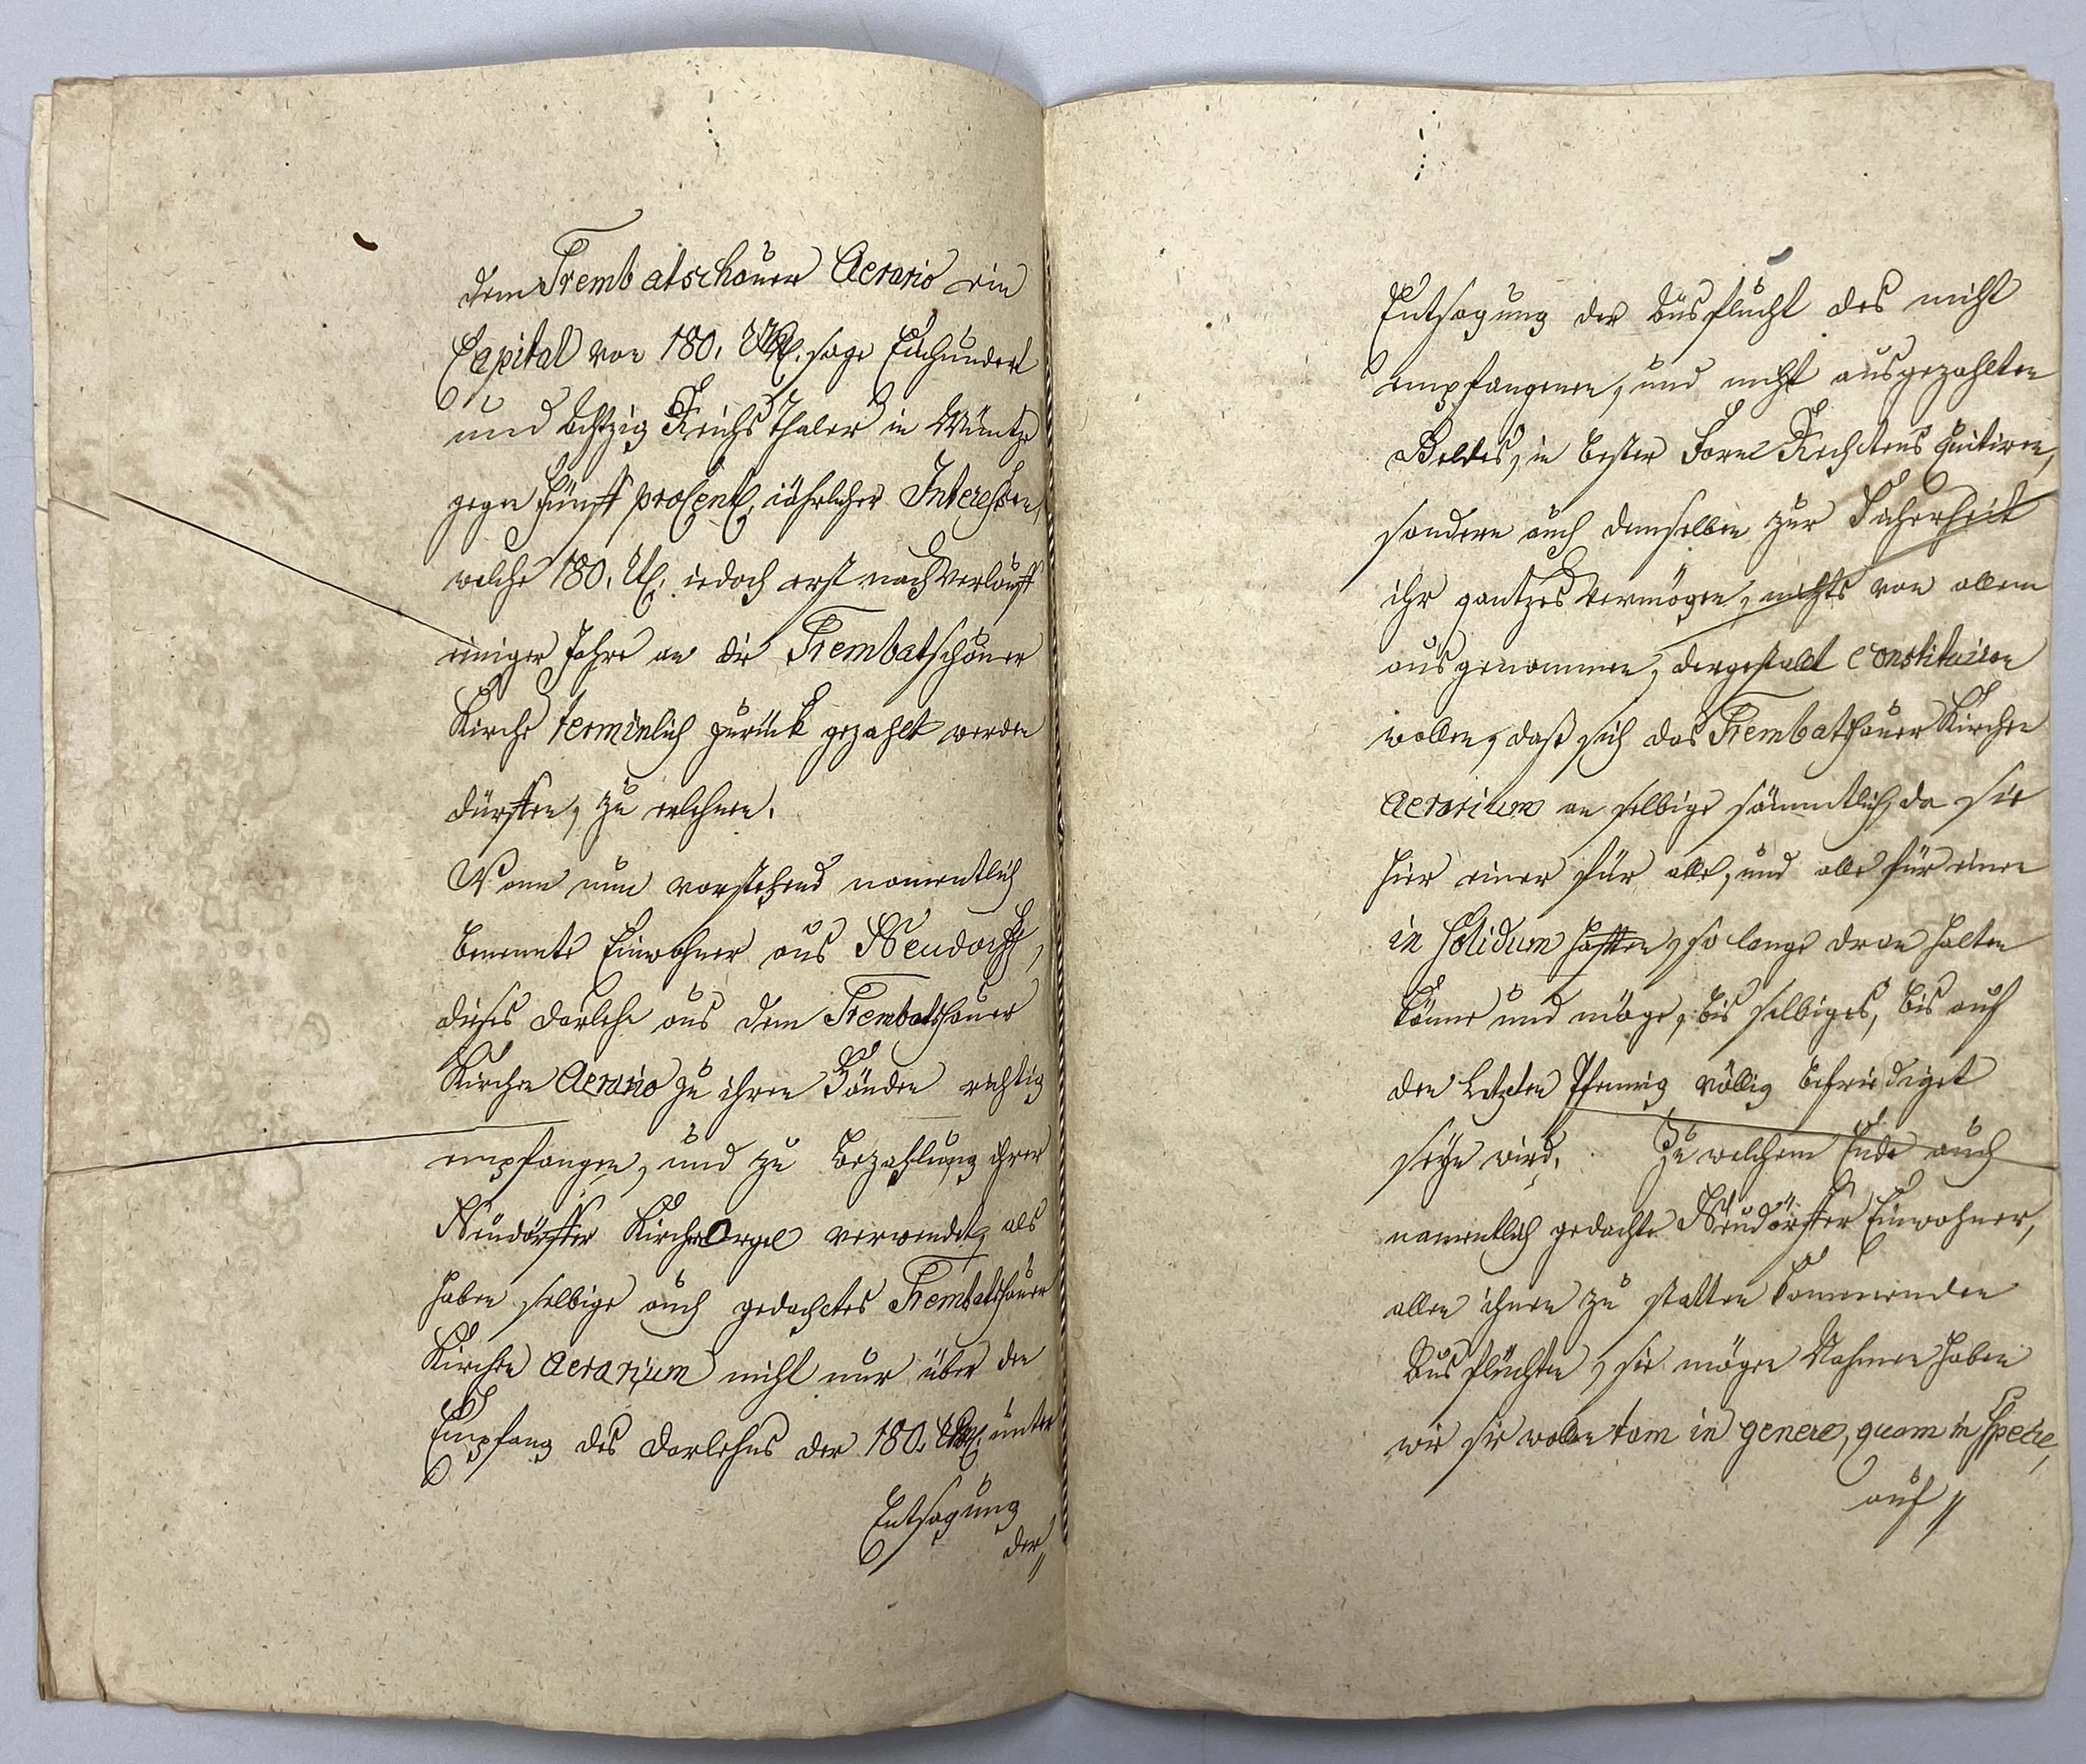 dem Trembatschauer Aerario ein
Capital von 180. Rthl. sage Einhundert
und Achtzig Reichsthaler in Müntze
gegen fünff proCent. jährlicher Interessen,
welche 180. Rthl. iedoch erst nach Verlauff
einiger Jahre an die Trembatschauer
Kirche terminlich zurück gezahlt werden
dürffen, zu erlehnen.
Wenn nun vorstehend namentlich
benennte Einwohner aus Neudorff,
dieses Darlehn aus dem Trembatschauer
Kirchen Aerario zu ihren Händen richtig
empfangen, und zu Bezahlung ihrer
Neudörffer Kirchen Orgel verwendet, als
haben selbige auch gedachtes Trembatschauer
Kirchen Aerarium nicht nur über den
Empfang des Darlehns der 180. Rthl. unter
Entsagung
der
Entsagung der Ausflucht des nicht
empfangenen, und nicht ausgezahlten
Geldes, in bester Form Rechtens quitiren,
sondern auch demselben zur Sicherheit
ihr gantzes Vermögen, nichts von allem
ausgenommen, dergestalt constituiren
wollen, daß sich das Trembatschauer Kirchen
Aerarium an selbige sämmtlich, da sie
hier einer für alle, und alle für einen
in Solidum hafften, so lange dran halten
könne und möge, bis selbiges, bis auf
den Letzten Pfennig völlig befriediget
seyn wird. Zu welchem Ende auch
namentlich gedachte Neudörffer Einwohner,
allen ihnen zu statten kommenden
Ausflüchten, sie mögen Nahmen haben
wie sie wollen tam in genere, quam in Specie,
auf